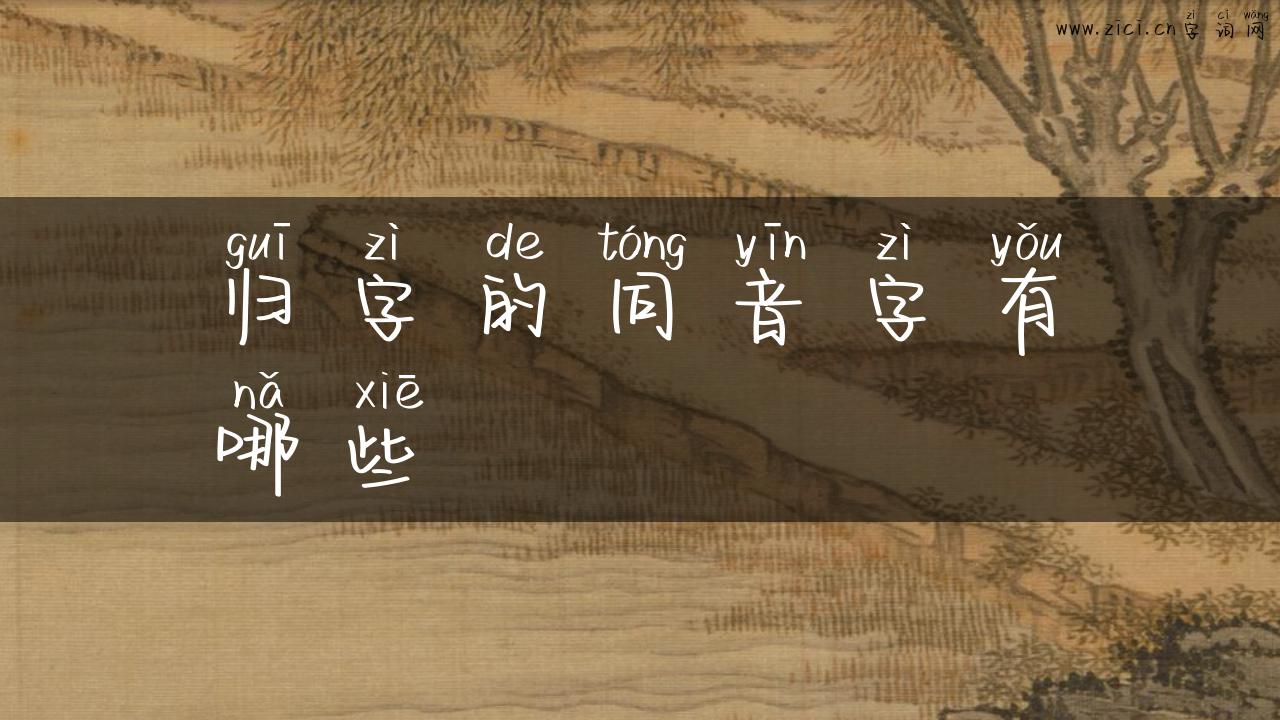 zì cí wǎng
www.zici.cn字词网
guī zì de tóng yīn zì yǒu
归字的同音字有
nǎ xiē
哪些